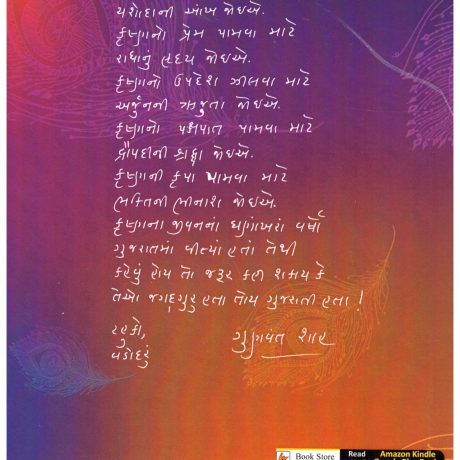 યશોદાની આંખ જોઇએ.
કૃષ્ણનો પ્રેમ પામવા માટે
રાધાનું હૃદય જોઇએ.
કૃષ્ણનો ઉપદેશ ઝીલવા માટે
અર્જુનની ઋજુતા જોઇએ.
કૃષ્ણનો પક્ષપાત પામવા માટે
દ્રૌપદીની શ્રદ્ધા જોઇએ.
કૃષ્ણની કૃપા પામવા માટે
ભક્તિની ભીનાશ જોઇએ.
કૃષ્ણના જીવનનાં ઘણાંખરાં વર્ષો
ગુજરાતમાં વીત્યાં હતાં તેથી
કહેવું હોય તો જરૂર કહી શકાય કે
તેઓ જગદ્ગુરુ હતા તોય ગુજરાતી હતા !
ટહુકો,
વડોદરું
ગુણવંત શાહ
Book Store
Read
Amazon Kindle